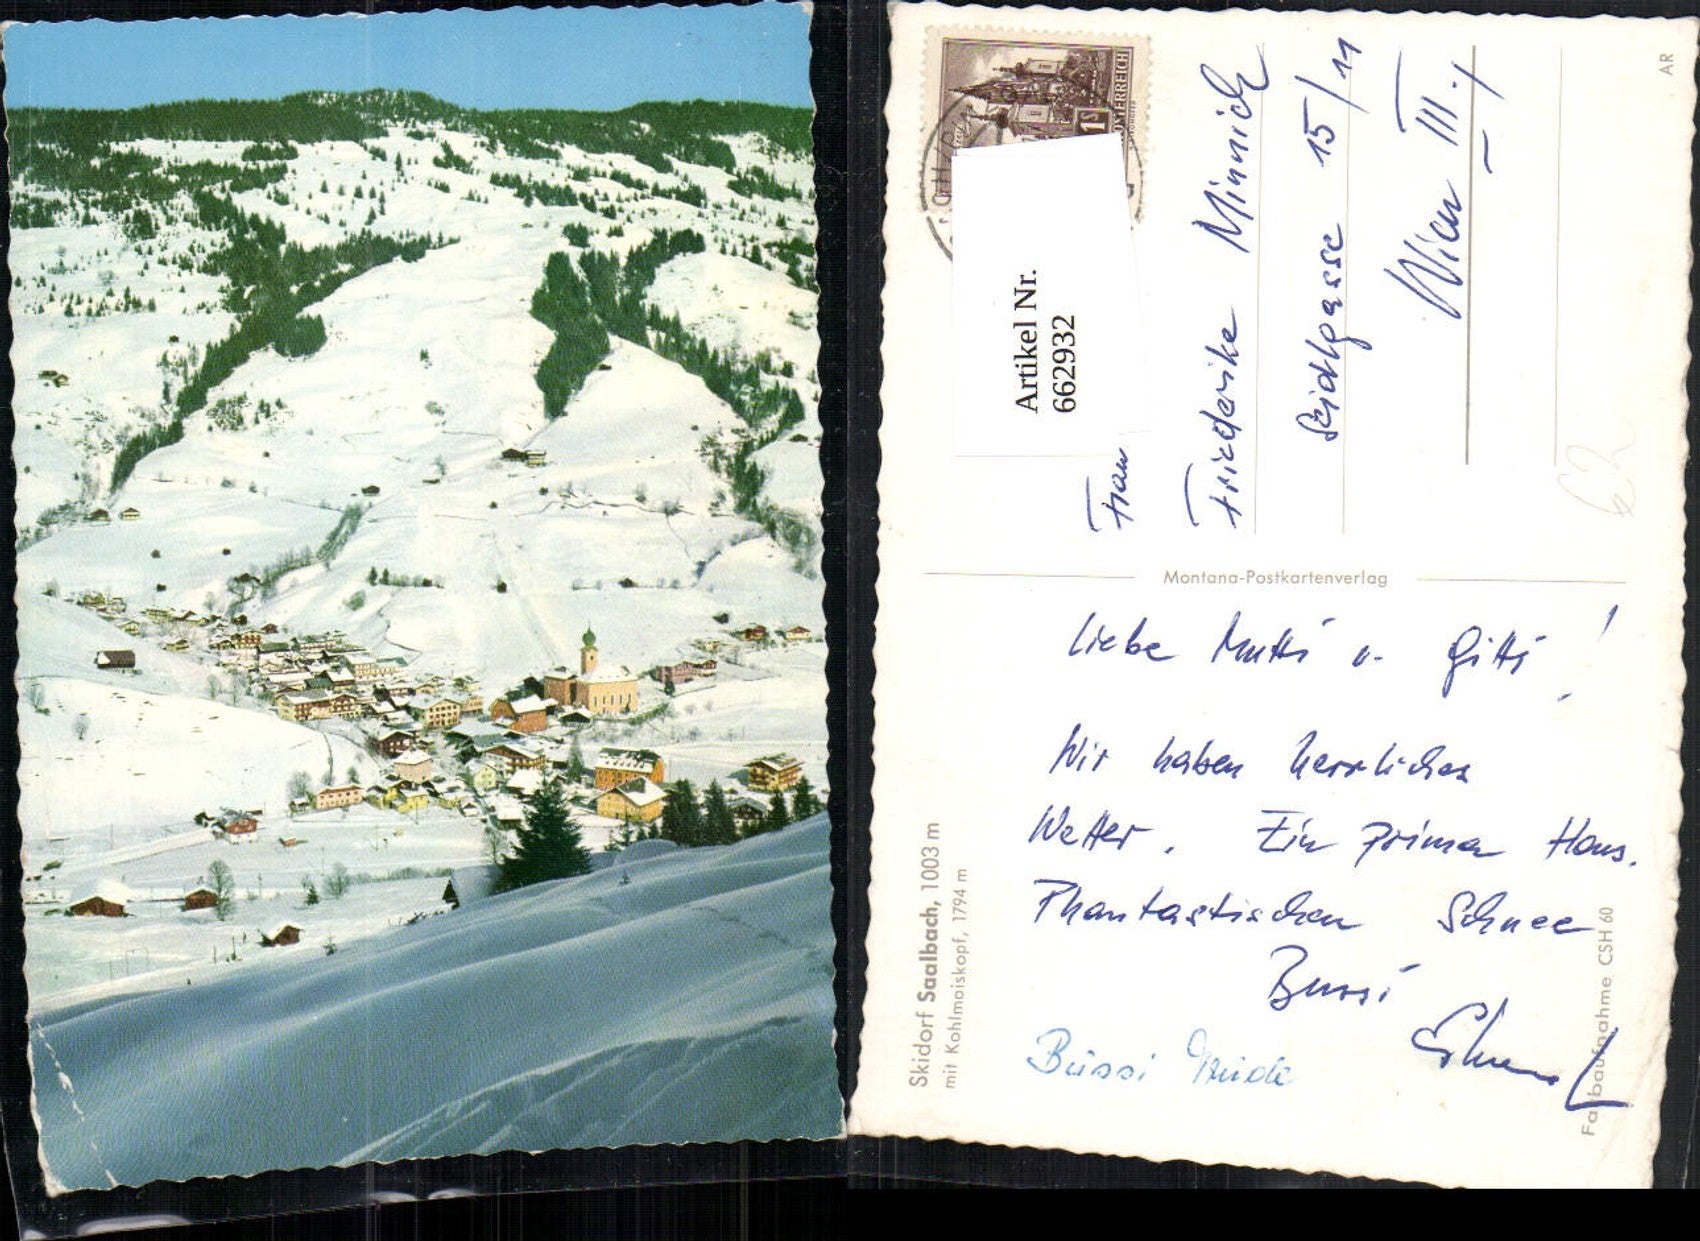 1S
ÖSTERREICH
Artikel Nr.
662932
Frau
Friederike Minnich
Seidlgasse 15/11
Wien III.
AR
62
Montana-Postkartenverlag
Liebe Mutti u. Gitti!
Wir haben herrliches
Wetter. Ein prima Haus.
Phantastischen Schnee
Bussi
Bussi
Skidorf Saalbach, 1003 m
mit Kohlmaiskopf, 1794 m
Farbaufnahme CSH 60